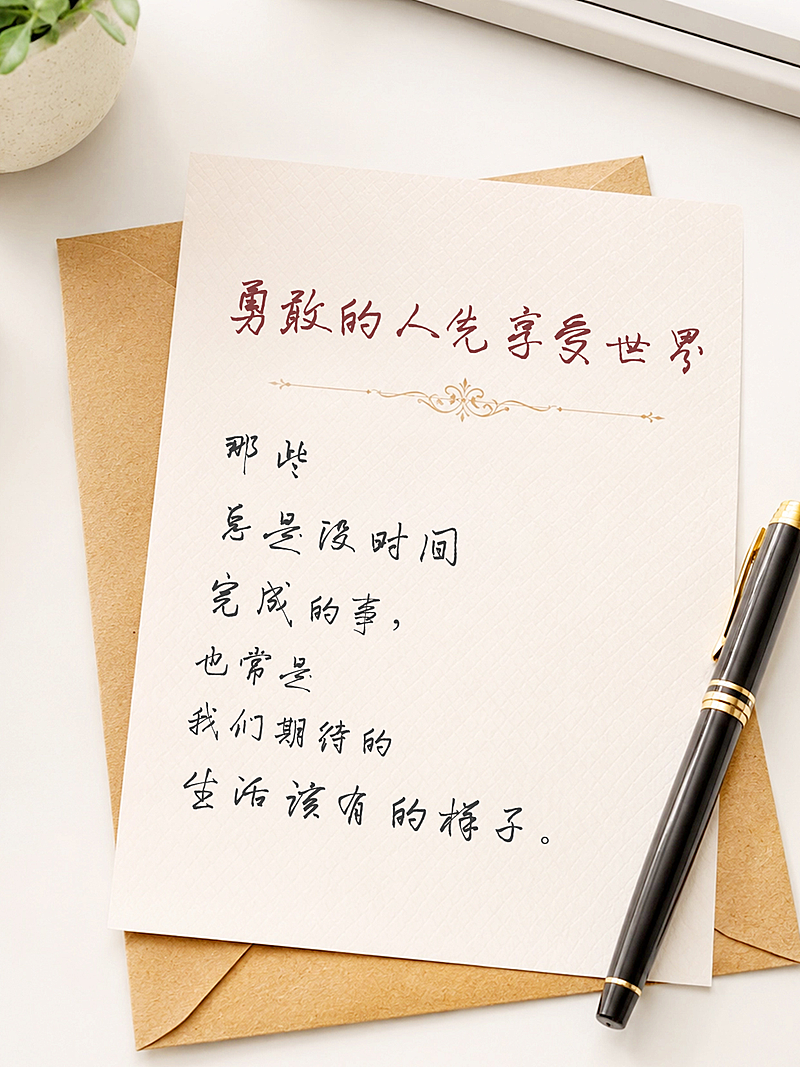 勇敢的人先享受世界
那些
总是没时间
完成的事，
也常是
我们期待的
生活该有的样子。